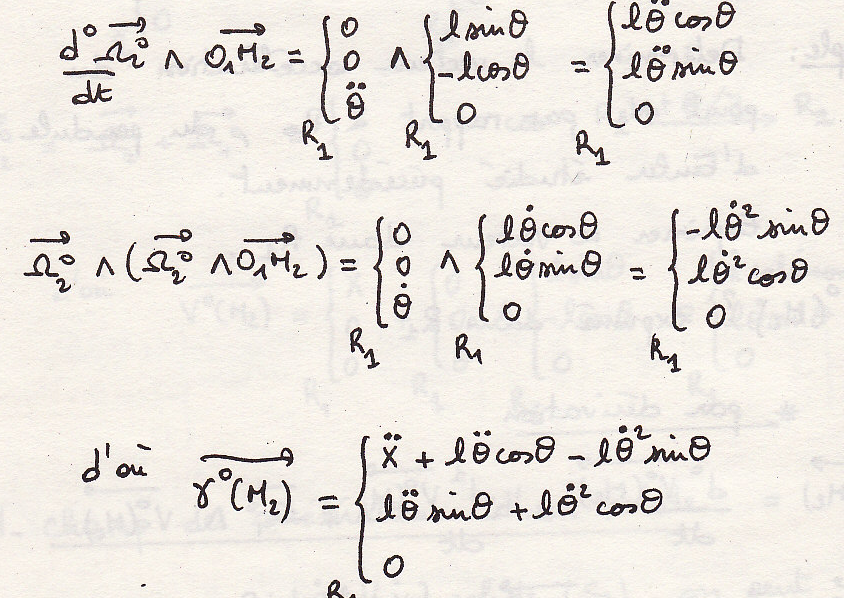 d⁰Ω₂⁰/dt ∧ O₁M₂ = { 0 ; 0 ; θ̈ }_R₁ ∧ { l sinθ ; -l cosθ ; 0 }_R₁ = { lθ̈ cosθ ; lθ̈ sinθ ; 0 }_R₁
Ω₂⁰ ∧ (Ω₂⁰ ∧ O₁M₂) = { 0 ; 0 ; θ̇ }_R₁ ∧ { lθ̇ cosθ ; lθ̇ sinθ ; 0 }_R₁ = { -lθ̇² sinθ ; lθ̇² cosθ ; 0 }_R₁
d'où γ⁰(M₂) = { ẍ + lθ̈ cosθ - lθ̇² sinθ ; lθ̈ sinθ + lθ̇² cosθ ; 0 }_R₁